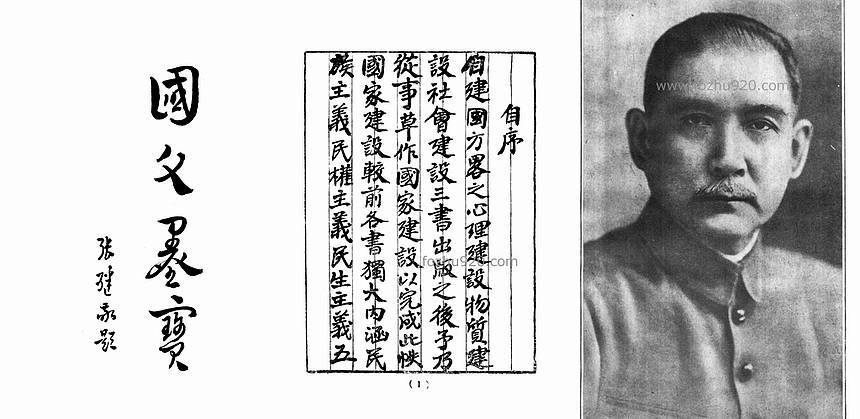 國父墨寶
張繼敬題
自序
自建國方畧之心理建設物質建
設社會建設三書出版之後予乃
從事草作國家建設以完成此帙
國家建設較前各書獨大內涵民
族主義民權主義民生主義五
(1)
fozhu920.com
www.fozhu920.com